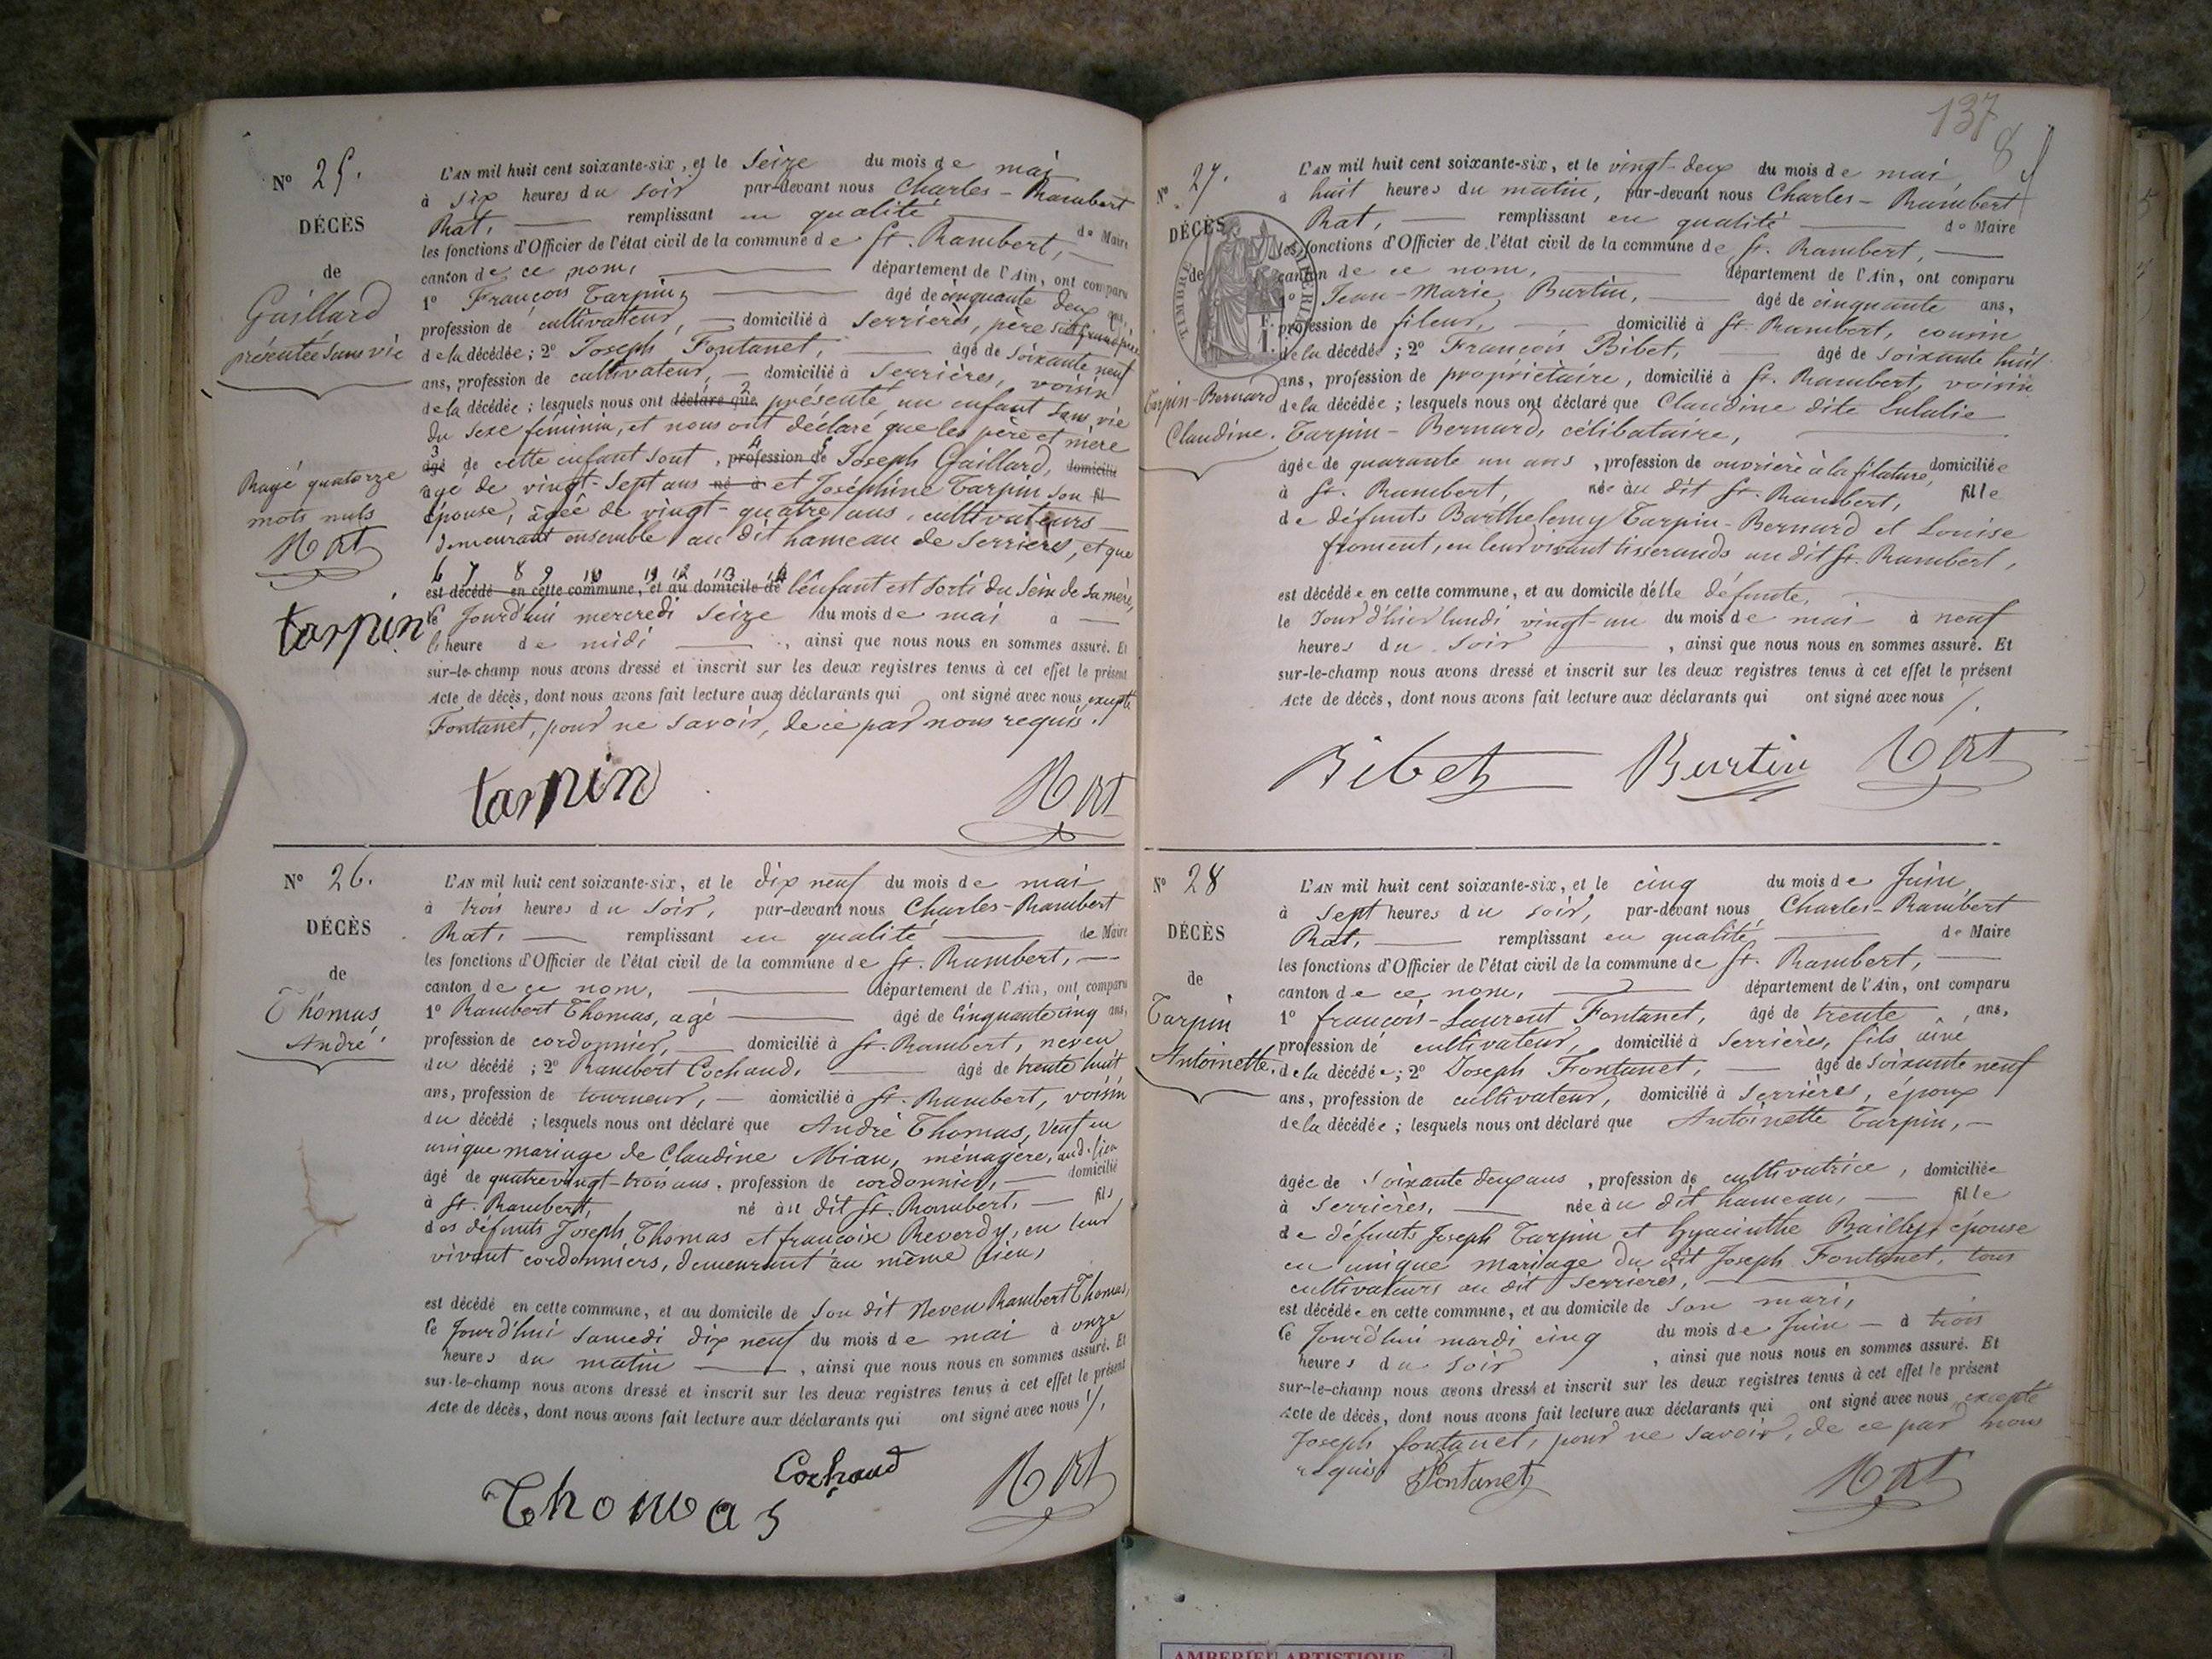 Nº 25.
DÉCÈS
de
Gaillard
présentée sans vie
L'AN mil huit cent soixante-six, et le Seize du mois de mai
à six heures du soir par-devant nous Charles-Rambert
Rat, remplissant en qualité de Maire
les fonctions d'Officier de l'état civil de la commune de St. Rambert,
canton de ce nom, département de l'Ain, ont comparu
1º François Tarpin, âgé de cinquante deux ans,
profession de cultivateur, domicilié à Serrières, père
de la décédée; 2º Joseph Fontanet, âgé de soixante neuf
ans, profession de cultivateur, domicilié à Serrières, voisin
de la décédée; lesquels nous ont déclaré que présenté un enfant sans vie
du sexe féminin, et nous ont déclaré que les père et mère
âgé de cette enfant sont, profession de Joseph Gaillard, domicilié
âgé de vingt-sept ans né à et Joséphine Tarpin son fil
épouse, âgée de vingt-quatre ans, cultivateurs
demeurant ensemble au dit hameau de Serrières, et que
6 7 8 9 10 11 12 13 14
est décédé en cette commune, et au domicile de l'enfant est sorti du sein de sa mère,
le jourd'hui mercredi seize du mois de mai à
l'heure de midi, ainsi que nous nous en sommes assuré. Et
sur-le-champ nous avons dressé et inscrit sur les deux registres tenus à cet effet le présent
Acte de décès, dont nous avons fait lecture aux déclarants qui ont signé avec nous, excepté
Fontanet, pour ne savoir, de ce par nous requis.
Rayé quatorze
mots nuls
Rat
tarpin
tarpin Rat
Nº 26.
DÉCÈS
de
Thomas
André
L'AN mil huit cent soixante-six, et le dix neuf du mois de mai
à trois heures du soir, par-devant nous Charles-Rambert
Rat, remplissant en qualité de Maire
les fonctions d'Officier de l'état civil de la commune de St. Rambert,
canton de ce nom, département de l'Ain, ont comparu
1º Rambert Thomas, agé âgé de cinquante cinq ans,
profession de cordonnier, domicilié à St. Rambert, neveu
du décédé; 2º Rambert Cochaud, âgé de trente huit
ans, profession de tourneur, domicilié à St. Rambert, voisin
du décédé; lesquels nous ont déclaré que André Thomas, veuf en
unique mariage de Claudine Mian, ménagère, aud. lieu
âgé de quatrevingt-trois ans, profession de cordonnier, domicilié
à St. Rambert, né au dit St. Rambert, fils
des défunts Joseph Thomas et françoise Reverdy, en leur
vivant cordonniers, demeurant au même lieu,
est décédé en cette commune, et au domicile de son dit Neveu Rambert Thomas,
le jourd'hui samedi dix neuf du mois de mai à onze
heures du matin, ainsi que nous nous en sommes assuré. Et
sur-le-champ nous avons dressé et inscrit sur les deux registres tenus à cet effet le présent
Acte de décès, dont nous avons fait lecture aux déclarants qui ont signé avec nous /.
Thomas Cochaud Rat
137
8
Nº 27.
DÉCÈS
de
Tarpin-Bernard
Claudine.
TIMBRE IMPÉRIAL
L'AN mil huit cent soixante-six, et le vingt-deux du mois de mai
à huit heures du matin, par-devant nous Charles-Rambert
Rat, remplissant en qualité de Maire
les fonctions d'Officier de l'état civil de la commune de St. Rambert,
canton de ce nom, département de l'Ain, ont comparu
1º Jean-Marie Burtin, âgé de cinquante ans,
profession de fileur, domicilié à St. Rambert, cousin
de la décédée; 2º François Bibet, âgé de soixante huit
ans, profession de propriétaire, domicilié à St. Rambert, voisin
de la décédée; lesquels nous ont déclaré que Claudine dite Lulalie
Tarpin-Bernard, célibataire,
âgée de quarante un ans, profession de ouvrière à la filature, domiciliée
à St. Rambert, née au dit St. Rambert, fille
de défunts Barthelemy Tarpin-Bernard et Louise
froment, en leur vivant tisserands au dit St. Rambert,
est décédée en cette commune, et au domicile d'elle défunte,
le jour d'hier lundi vingt-un du mois de mai à neuf
heures du soir, ainsi que nous nous en sommes assuré. Et
sur-le-champ nous avons dressé et inscrit sur les deux registres tenus à cet effet le présent
Acte de décès, dont nous avons fait lecture aux déclarants qui ont signé avec nous /.
Bibet Burtin Rat
Nº 28
DÉCÈS
de
Tarpin
Antoinette.
L'AN mil huit cent soixante-six, et le cinq du mois de Juin
à sept heures du soir, par-devant nous Charles-Rambert
Rat, remplissant en qualité de Maire
les fonctions d'Officier de l'état civil de la commune de St. Rambert,
canton de ce nom, département de l'Ain, ont comparu
1º françois-Laurent Fontanet, âgé de trente ans,
profession de cultivateur, domicilié à Serrières, fils ainé
de la décédée; 2º Joseph Fontanet, âgé de soixante neuf
ans, profession de cultivateur, domicilié à Serrières, époux
de la décédée; lesquels nous ont déclaré que Antoinette Tarpin,
âgée de soixante deux ans, profession de cultivatrice, domiciliée
à Serrières, née au dit hameau, fille
de défunts Joseph Tarpin et hyacinthe Bailly, épouse
en unique mariage du dit Joseph Fontanet, tous
cultivateurs au dit Serrières,
est décédée en cette commune, et au domicile de son mari,
le jourd'hui mardi cinq du mois de Juin à trois
heures du soir, ainsi que nous nous en sommes assuré. Et
sur-le-champ nous avons dressé et inscrit sur les deux registres tenus à cet effet le présent
Acte de décès, dont nous avons fait lecture aux déclarants qui ont signé avec nous, excepté
Joseph fontanet, pour ne savoir, de ce par nous
requis Fontanet Rat
AMBERIEU ARTISTIQUE